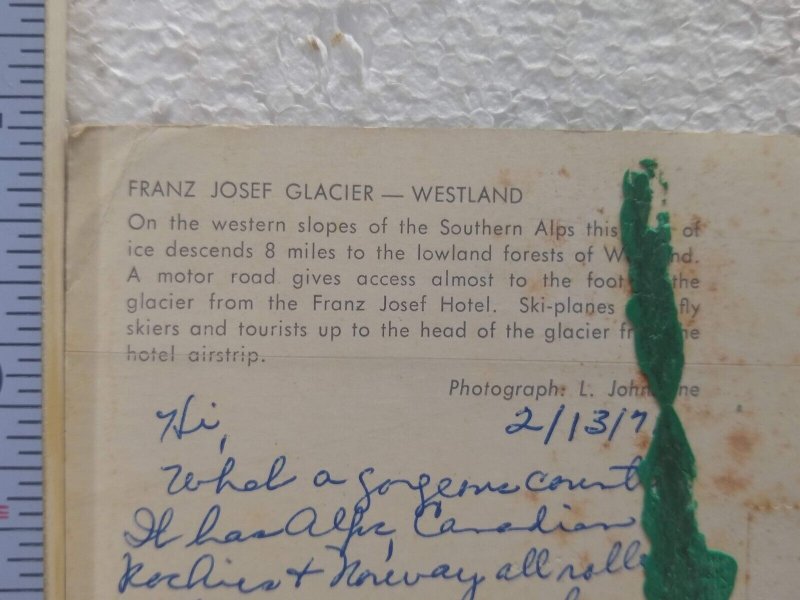 FRANZ JOSEF GLACIER — WESTLAND
On the western slopes of the Southern Alps this of
ice descends 8 miles to the lowland forests of
A motor road gives access almost to the foot the
glacier from the Franz Josef Hotel. Ski-planes fly
skiers and tourists up to the head of the glacier
hotel airstrip.
Photograph: L.
Hi,
2/13/7
What a gorgeous
It has Alps, Canadian
Rockies & Norway all